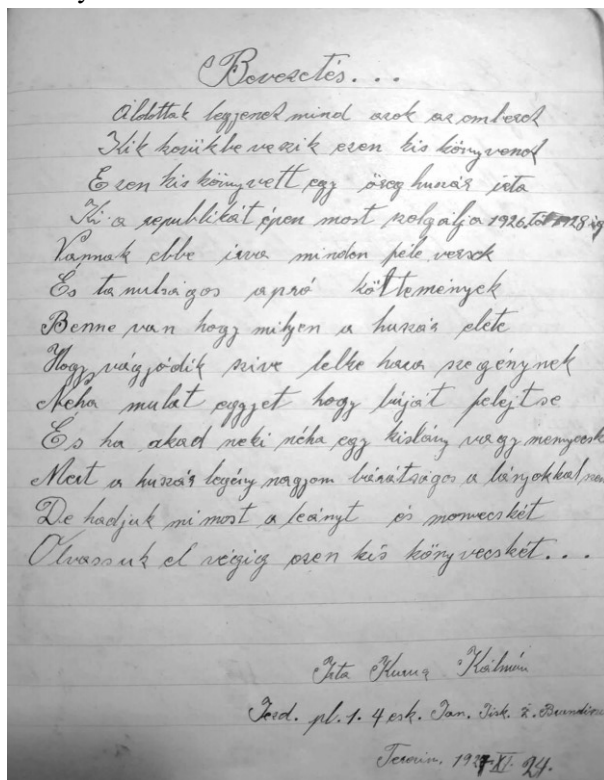 Bevezetés...
Áldottak legyenek mind azok az emberek
Kik kezükbe veszik ezen kis könyvenek
Ezen kis könyvett egy öreg huszár irta
Ki a republikát épen most szolgálja 1926 tól 1928 ig
Vannak ebbe irva minden féle versek
És tanulságos apró költemények
Benne van hogy milyen a huszár élete
Hogy vágjódik szive lelke haza szegénynek
Néha mulat eggyet hogy búját felejtse
És ha akad neki néha egy kislány vagy menyecske
Mert a huszár legény nagyom bárátságos a lányokkal
De hadjuk mi most a leányt és menyecskét
Olvassuk el végig ezen kis könyvecskét...
Irta Kálmán
pl. 1. 4 esk. Jan. Jisk. z. Brandisu
Terezin. 1927 XI. 24.